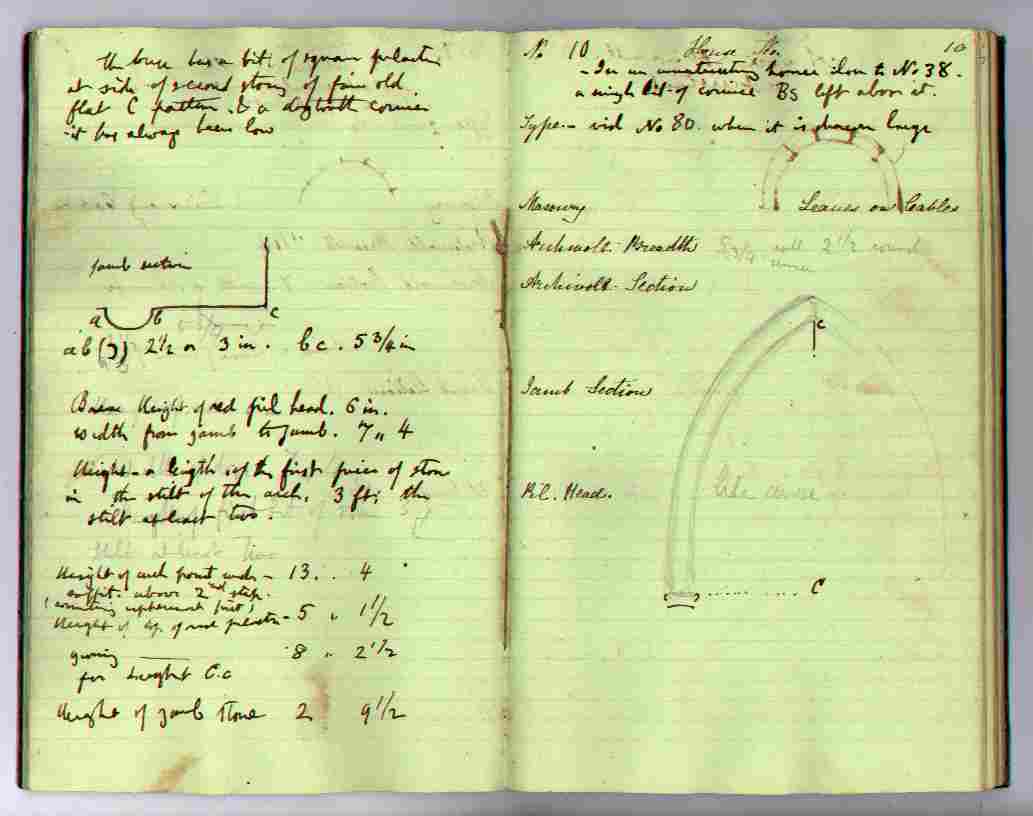 The house has a bit of square pilaster
at side of second story of fine old
flat C pattern. & a dogtooth cornice
it has always been low
Jamb section
a b c
a b (3) 2 1/2 or 3 in. b c. 5 3/4 in
Height of red head. 6 in.
width from jamb to jamb. 7 " 4
Height or length of the first piece of stone
in the stilt of the arch, 3 ft; the
stilt at least two.
stilt at least two
Height of arch point under - 13 . . 4
soffit. above 2nd step.
(counting uppermost first)
Height of top of red pilaster - 5 " 1 1/2
giving 8 " 2 1/2
for height C.c
Height of jamb stone 2 9 1/2
No 10 House No. 10
- In an uninteresting house close to No 38.
a single bit of cornice B5 left above it.
Type - vid No 80. when it is drawn large
Masonry Leaves on Cables
Archivolt - Breadth roll 2 1/2 round
Archivolt - Section
c
Jamb Section
P.C. Head.
C